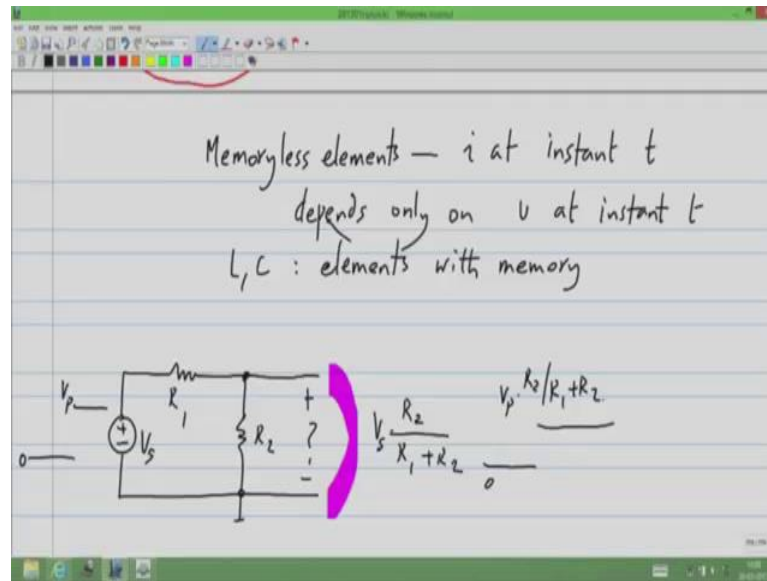 Memoryless elements — i at instant t
depends only on v at instant t
L, C : elements with memory
Vp
0
+
-
Vs
R1
R2
+
?
-
Vs R2 / R1 + R2
Vp · R2/R1+R2
0